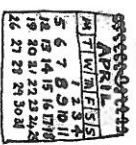 APRIL
M T W T F S S
1 2 3 4
5 6 7 8 9 10 11
12 13 14 15 16 17 18
19 20 21 22 23 24 25
26 27 28 29 30 31